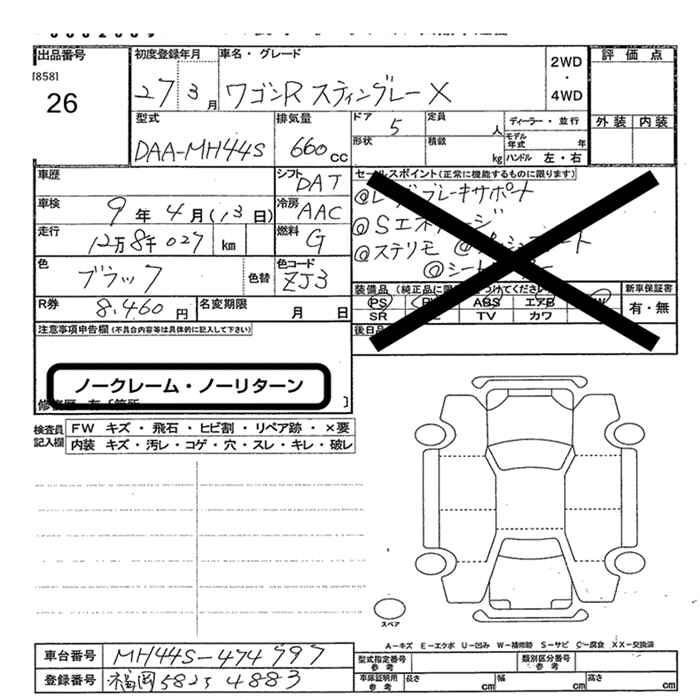 出品番号 初度登録年月 車名・グレード 2WD・4WD 評価点
[858]
26
27 3月 ワゴンR スティングレー X
外装 内装
型式 DAA-MH44S
排気量 660cc
ドア 5 定員 人 ディーラー・並行
形状 積載 kg モデル年式 年
ハンドル 左・右
車歴
シフト DAT
セールスポイント(正常に機能するものに限ります)
車検 9年4月(13日)
冷房 AAC
@Sエネ
走行 12万8千027 km
燃料 G
@ステリモ
色 ブラック 色替
色コード ZJ3
装備品 新車保証書
PS ABS エアB
SR TV カワ
有・無
R券 8,460円 名変期限 月 日
注意事項申告欄(不具合内容等は具体的に記入して下さい)
後日品
ノークレーム・ノーリターン
検査員記入欄
FW キズ・飛石・ヒビ割・リペア跡・×要
内装 キズ・汚レ・コゲ・穴・スレ・キレ・破レ
スペア
A-キズ E-エクボ U-凹み W-補修跡 S-サビ C-腐食 XX-交換済
車台番号 MH44S-474797
型式指定番号 参考 類別区分番号 参考
登録番号 福岡 582 5 4883
車庫証明用 参考 長さ cm 幅 cm 高さ cm